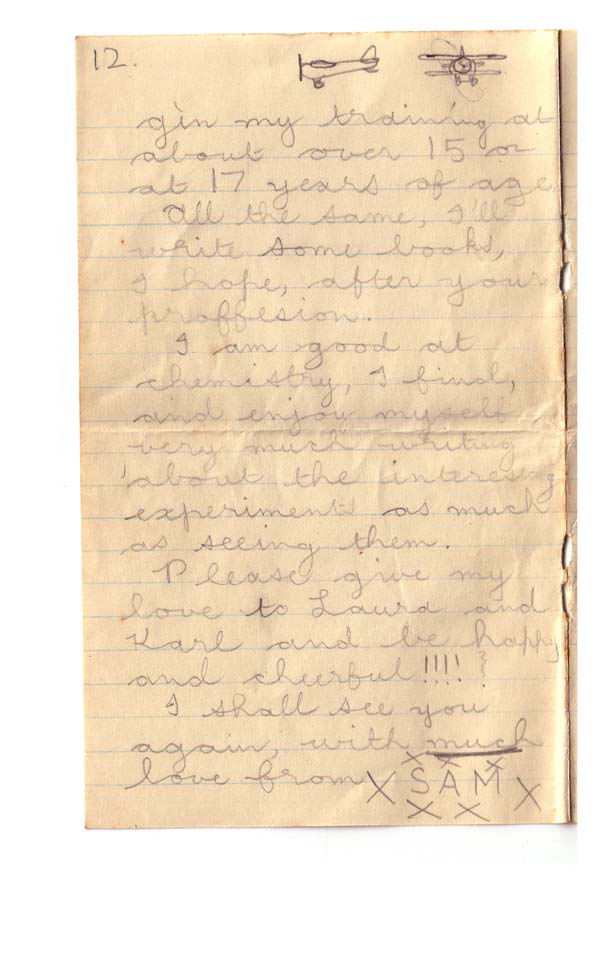 12.
gin my training at
about over 15 or
at 17 years of age
All the same, I'll
write some books,
I hope, after your
proffesion.
I am good at
chemistry, I find,
and enjoy myself
very much writing
about the interesing
experiments as much
as seeing them.
Please give my
love to Laura and
Karl and be happy
and cheerful!!!!
I shall see you
again, with much
love from X SAM X